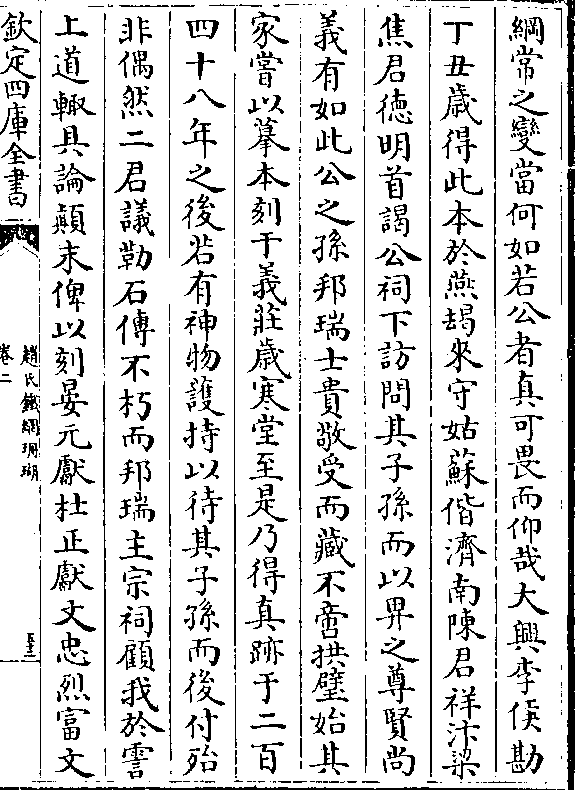 綱常之變當何如若公者真可畏而仰哉大興李侯勘
丁丑歲得此本於燕朅來守姑蘇偕濟南陳君祥汴梁
焦君德明首謁公祠下訪問其子孫而以畀之尊賢尚
義有如此公之孫邦瑞士貴敬受而藏不啻拱璧始其
家嘗以摹本刻于義莊歲寒堂至是乃得真跡于二百
四十八年之後若有神物護持以待其子孫而後付殆
非偶然二君議勒石傳不朽而邦瑞主宗祠顧我於霅
上道輙具論顛末俾以刻晏元獻杜正獻文忠烈富文
欽定四庫全書
趙氏鐵網珊瑚
卷二